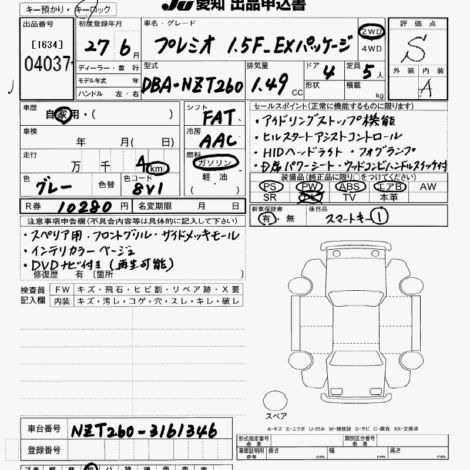 キー預かり・キーロック
JU 愛知 出品申込書
出品番号 初度登録年月 車名・グレード 評価点
[1634]
04037
27年 6月 プレミオ 1.5F_EXパッケージ 2WD 4WD S
ディーラー・並行 型式 排気量 ドア 定員 外装 内装
モデル年式 年 DBA-NZT260 1.49 CC 形状 4 5人 A
ハンドル 左・右 積載 kg
車歴 シフト セールスポイント(正常に機能するものに限ります)
自家用・( ) FAT ・アイドリングストップ機能
車検 冷房 ・ヒルスタートアシストコントロール
年 月( ) AAC ・HIDヘッドライト・フォグランプ
走行 燃料
万 千 4 km ガソリン
色 色替 色コード 軽油
グレー 8V1 ( )
装備品(純正品に限り〇をつけてください)
PS PW ABS エアB AW
SR TV 本革
R券 10280円 名変期限 月 日
新車保証書 後日品
有・無 スマートキー①
注意事項申告欄(不具合内容等は具体的に記入して下さい)
・スペリア用・フロントグリル・サイドメッキモール
・インテリカラーベージュ
・DVDナビ付き(再生可能)
修復歴 有( )箇所
検査員記入欄 FW キズ・飛石・ヒビ割・リペア跡・X要
内装 キズ・汚レ・コゲ・穴・スレ・キレ・破レ
スペア
A-キズ E-エクボ U-凹み W-補修跡 S-サビ C-腐食 XX-交換済
車台番号 NZT260-3161346
登録番号
形式指定番号 類別区分番号
車検証明用 長さ cm 幅 cm 高さ cm